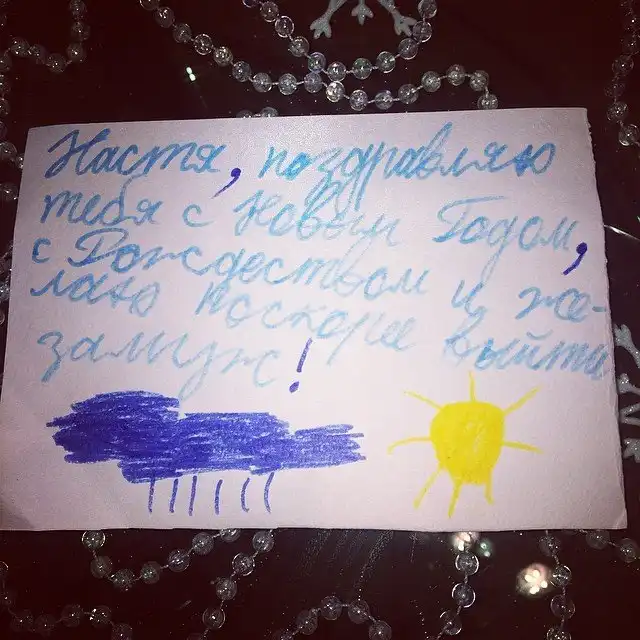 Настя, поздравляю
тебя с Новым Годом,
с Рождеством и же-
лаю поскорее выйти
замуж!